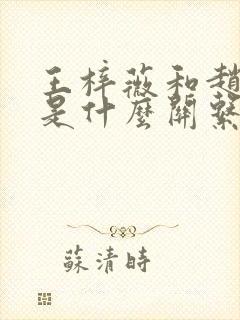 王梓薇和趙
是什麼關繫
蘇清時